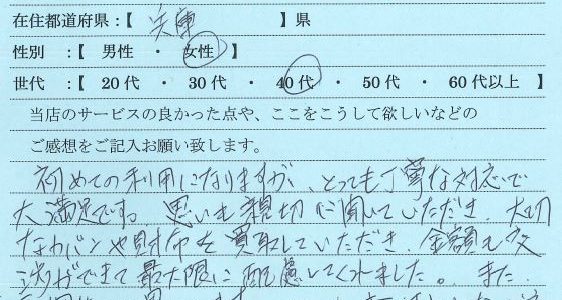 在住都道府県：【 兵庫 】県
性別 ：【 男性 ・ 女性 】
世代 ：【 20代 ・ 30代 ・ 40代 ・ 50代 ・ 60代以上 】
当店のサービスの良かった点や、ここをこうして欲しいなどの
ご感想をご記入お願い致します。
初めての利用になりますが、とっても丁寧な対応で
大満足です。思いも親切に聞いていただき、大切
なカバンや財布を買取していただき、金額も交
渉ができて最大限に配慮してくれました。また